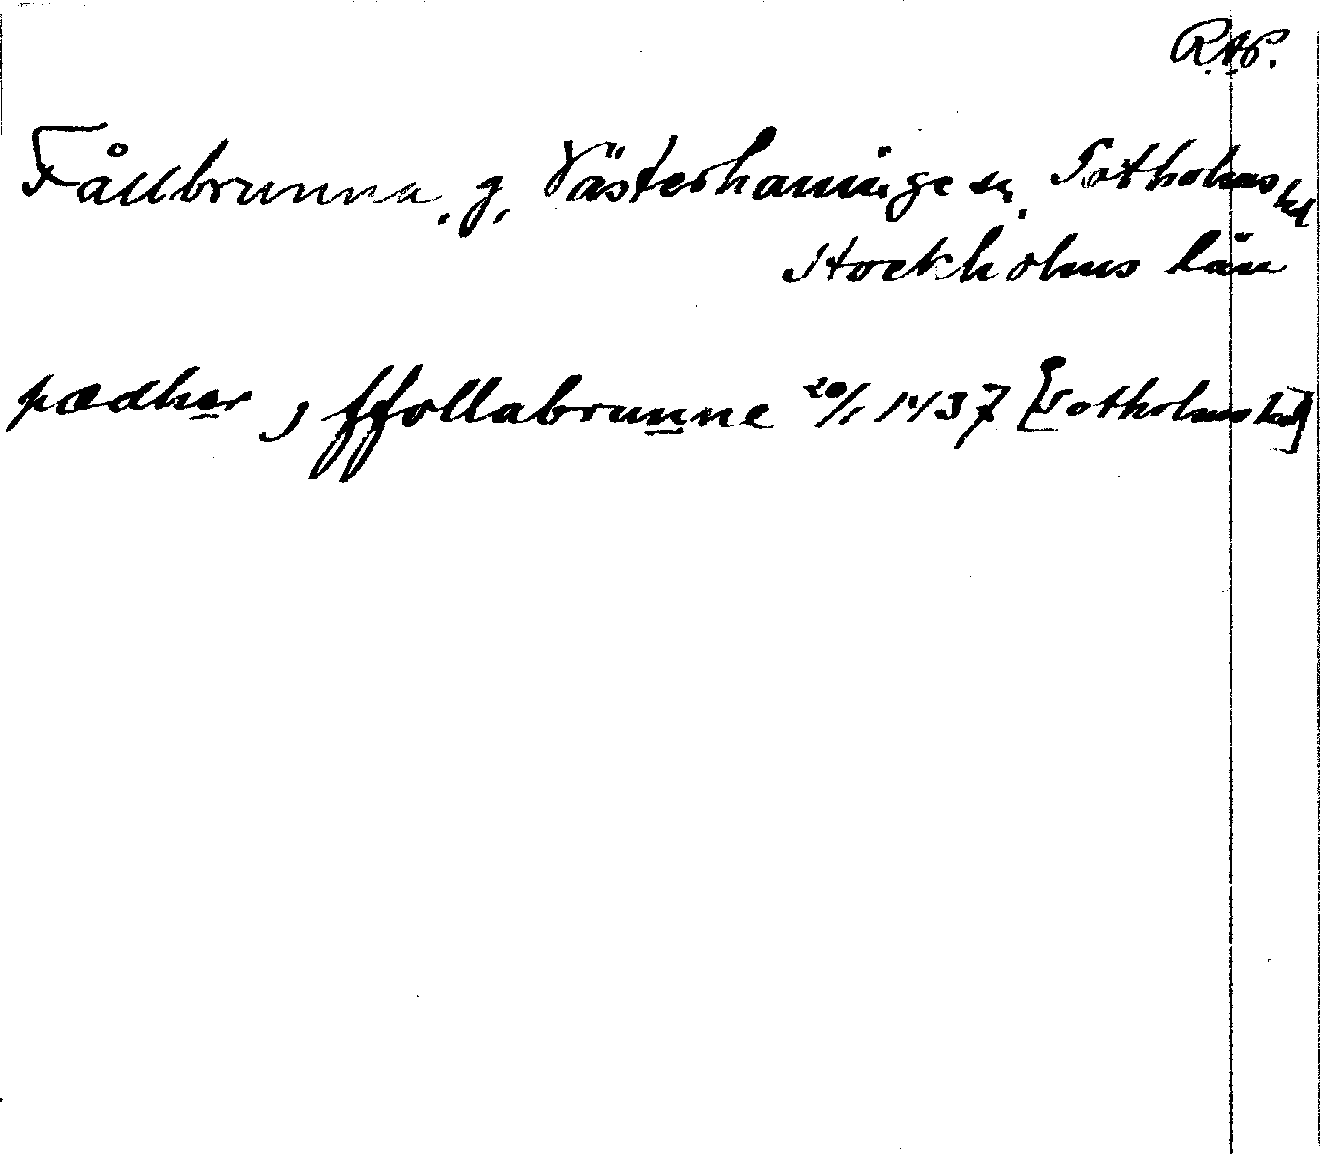 R.A.P.
Fållbrunna, g, Västerhaninge sn. Sotholms hd
Stockholms län
pædher j ffollabrunne 20/1 1437 [Sotholms hd]